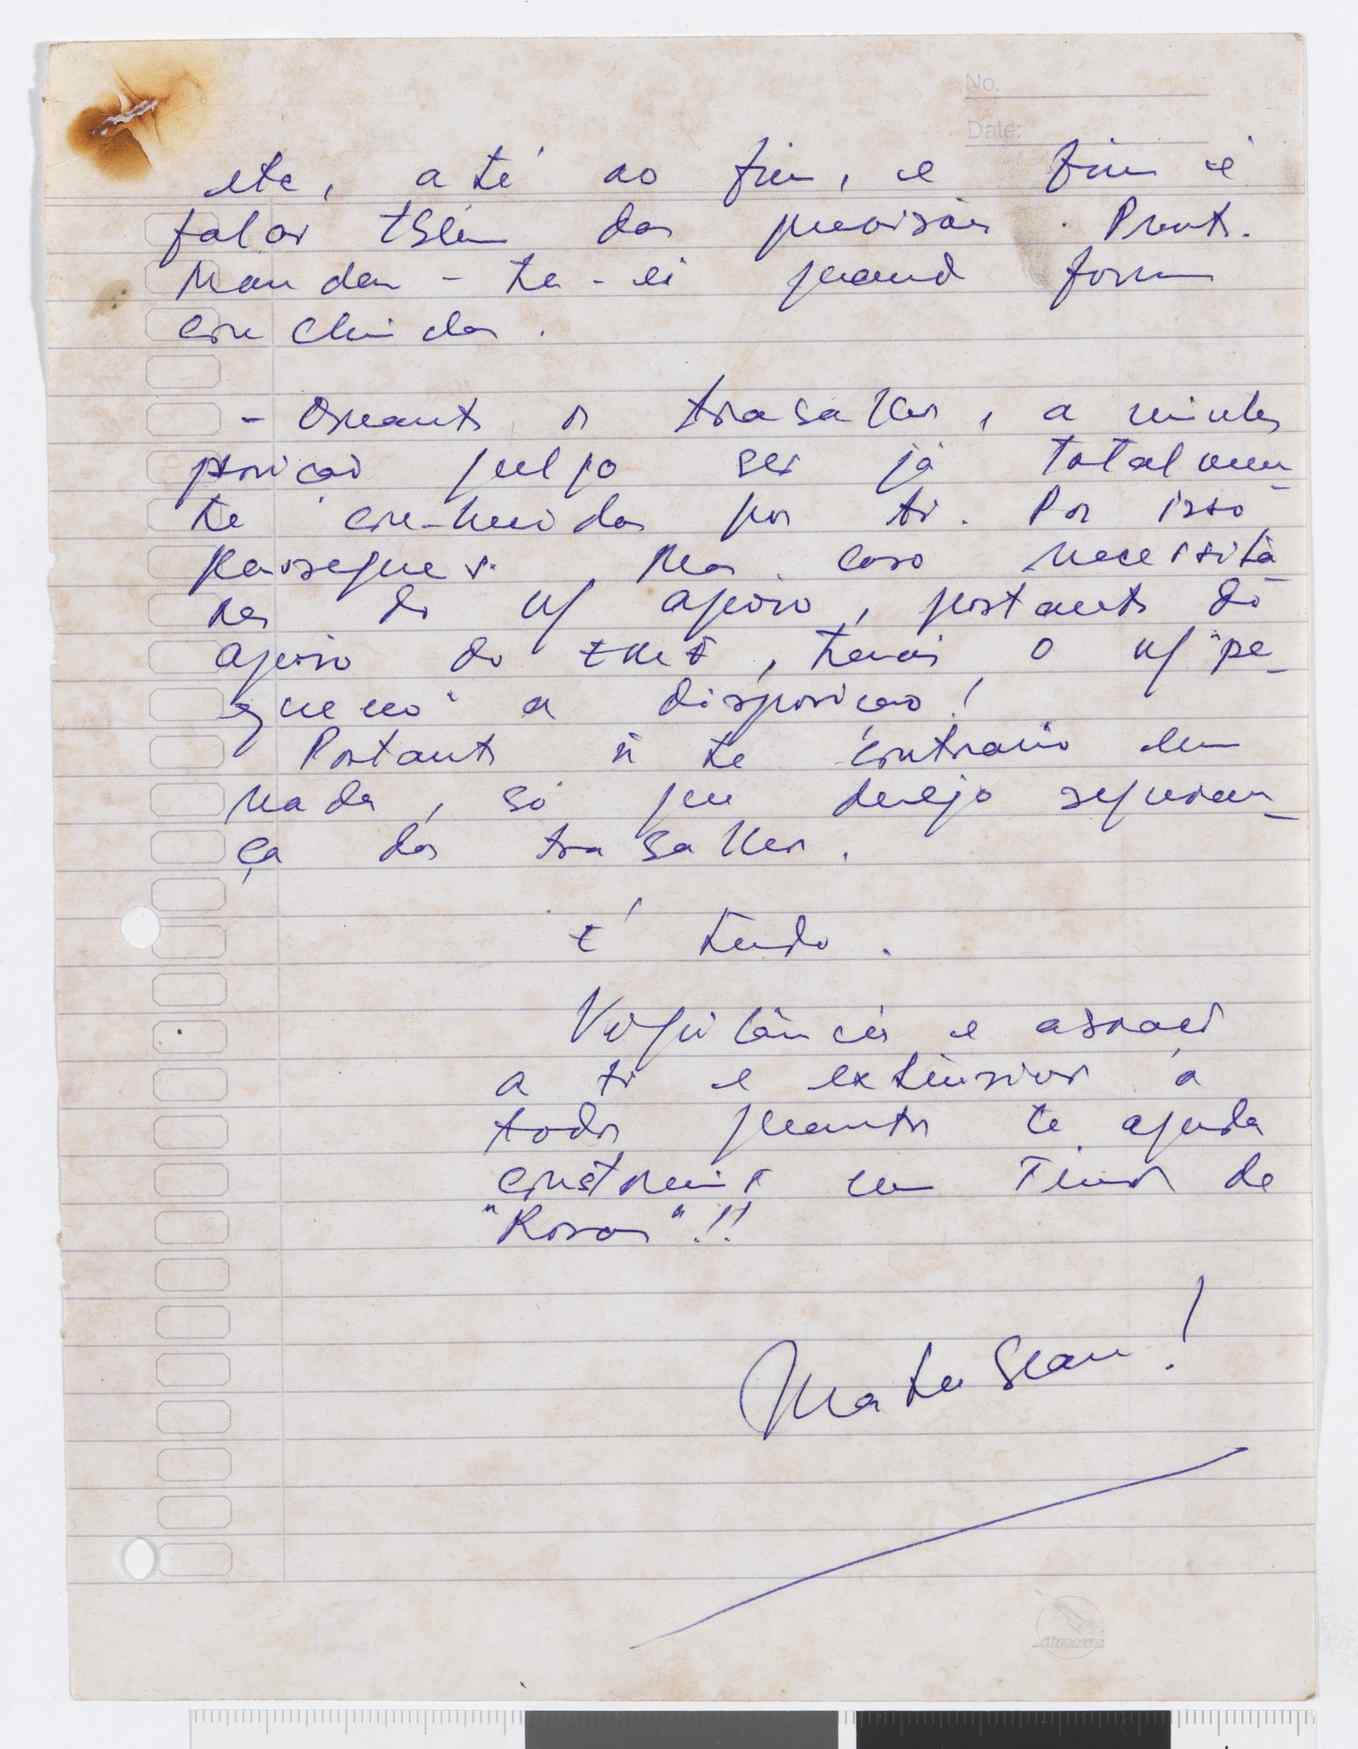 No.
Date:
etc, até ao fim, e fim é
falar tbém das previsões. Pront.
Mandar-te-ei quand forem
concluidas.
- Quanto os trabalhos, a minha
posição julgo ser já totalmen-
te conhecida por ti. Por isso
prossegues. Mas caso necessita
res do n/ apoio, portanto do
apoio do EMF, terás o n/ "pe-
queno" a disposição!
Portanto ñ te contrario em
nada, só que desejo seguran-
ça dos trabalhos.
É tudo.
Vigilância e abraço
a ti e extensivos á
todos quantos te ajuda
construir um Timor de
"Rosas"!!
Mate Bean!